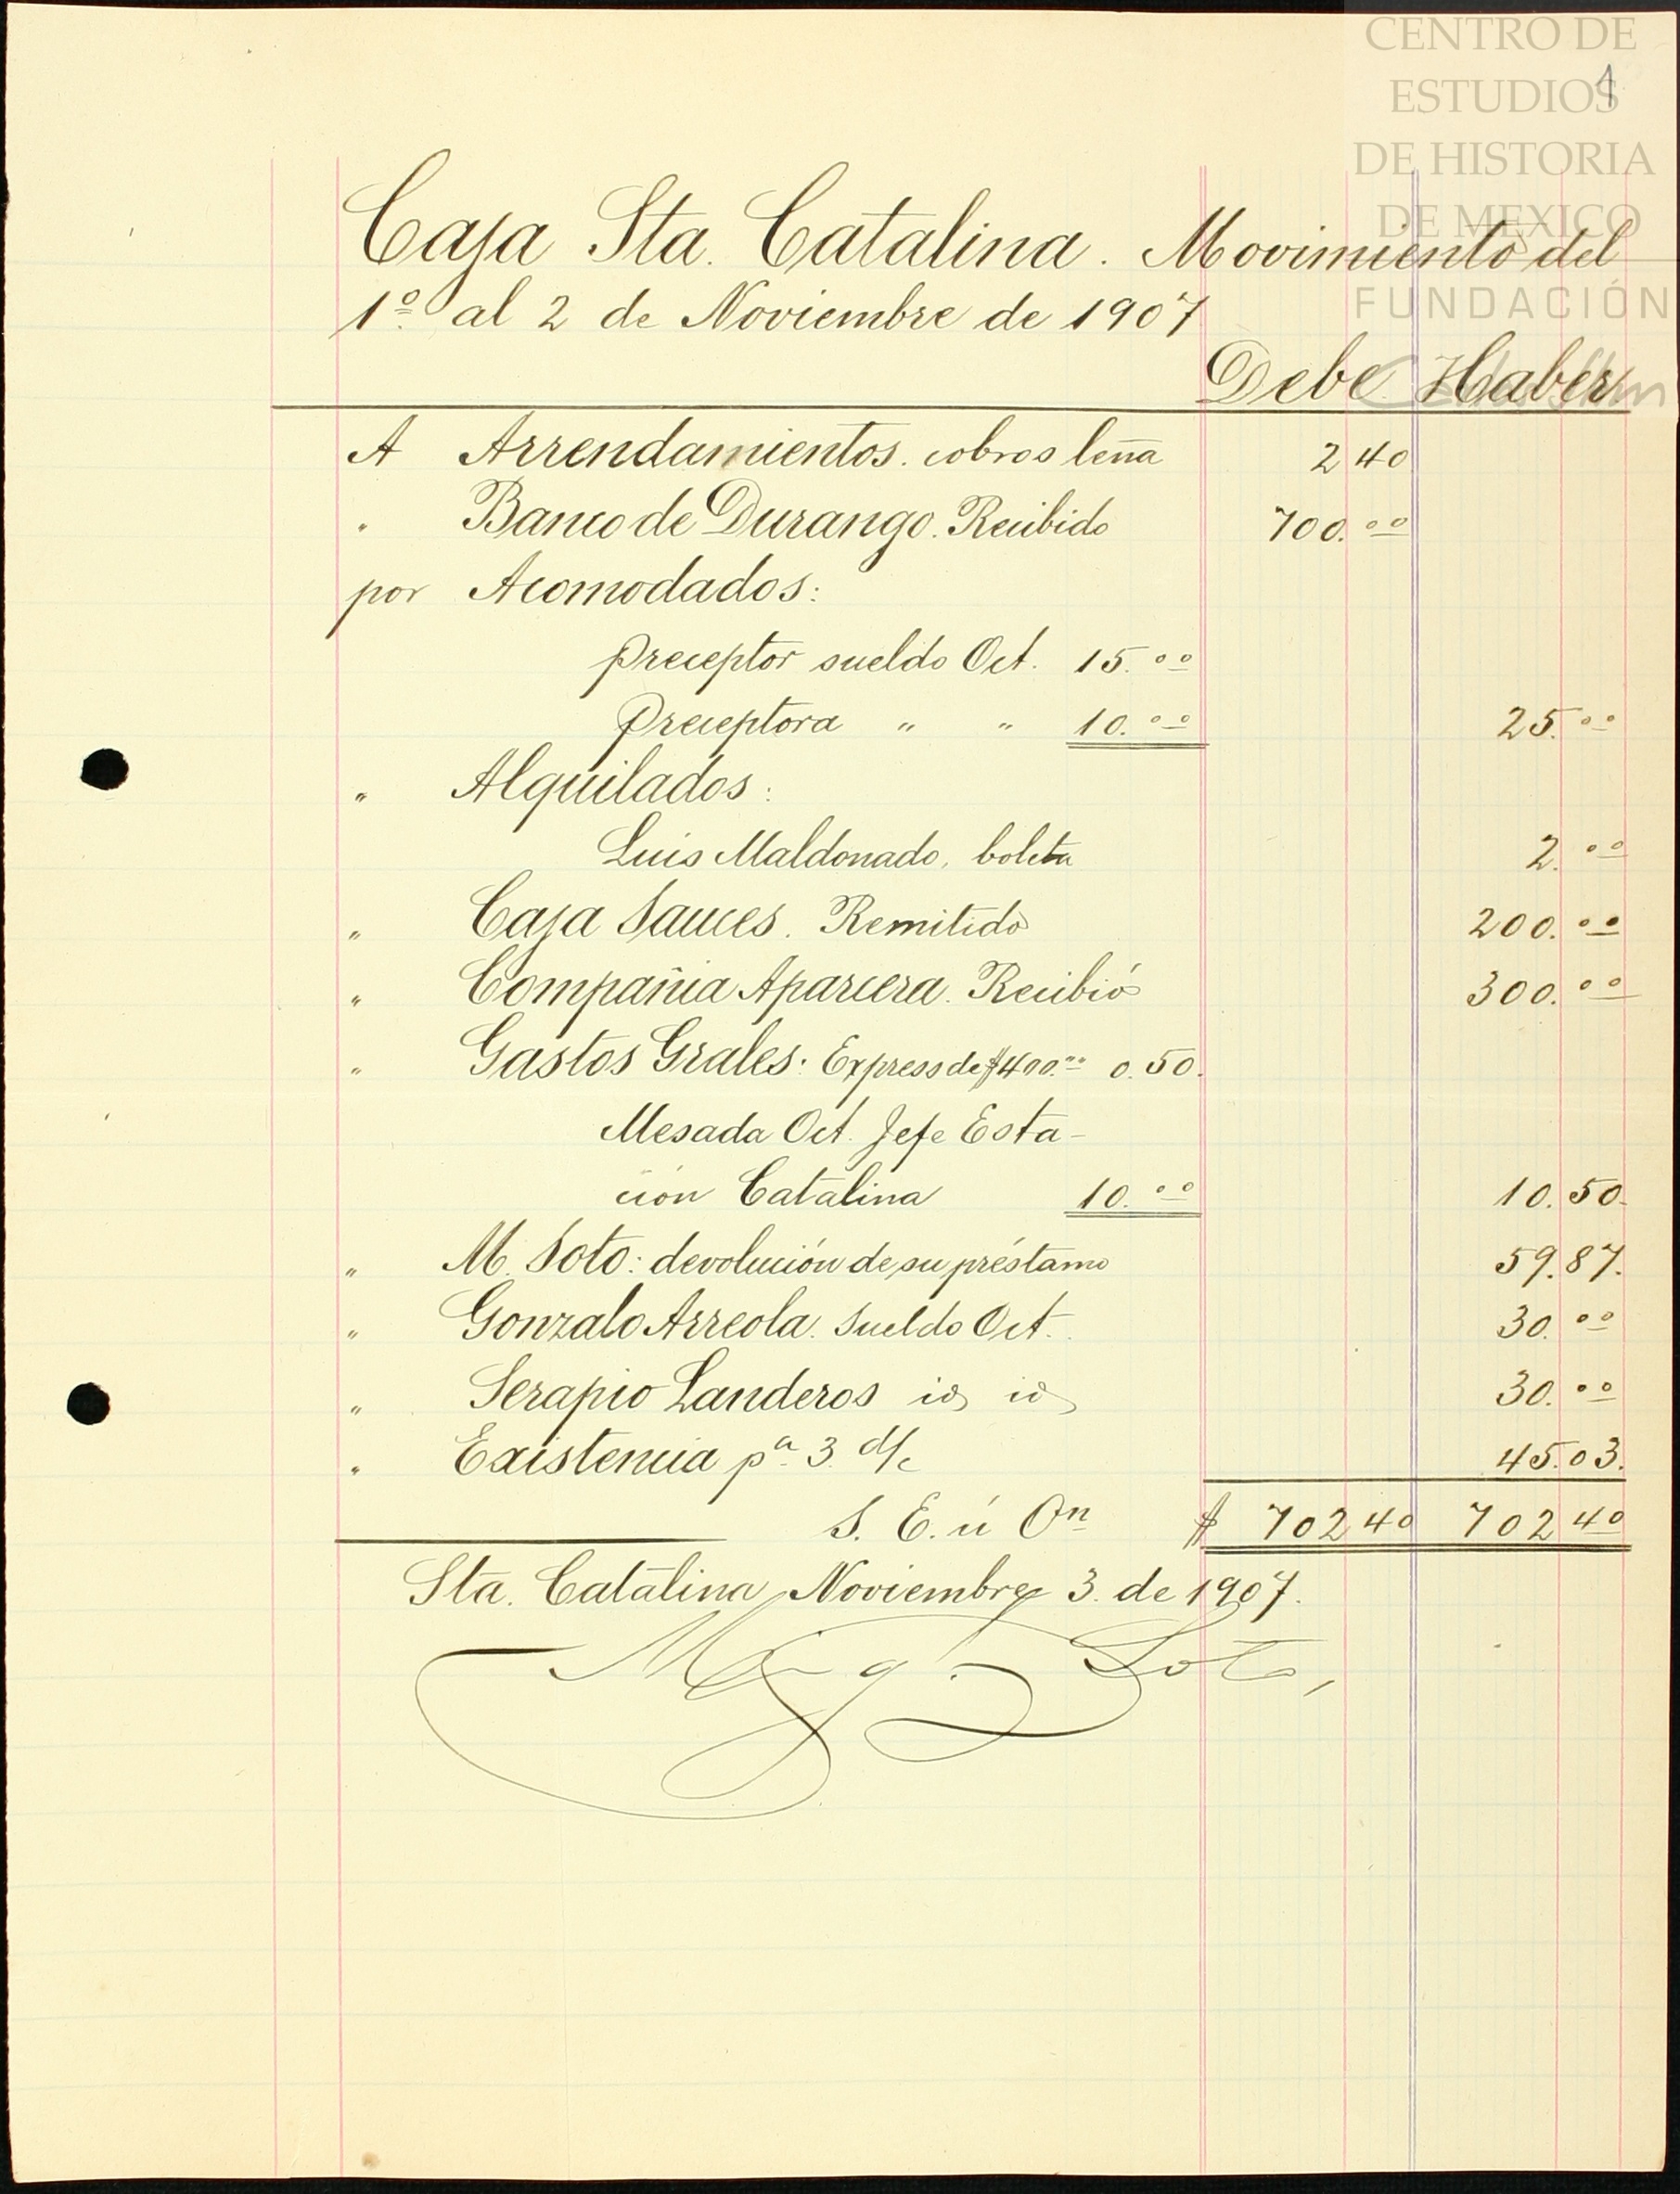 CENTRO DE
ESTUDIOS
DE HISTORIA
DE MEXICO
FUNDACIÓN
1
Caja Sta. Catalina. Movimiento del
1º al 2 de Noviembre de 1907
Debe Haber
A Arrendamientos. cobros leña 2 40
" Banco de Durango. Recibido 700.00
por Acomodados:
Preceptor sueldo Oct. 15.00
Preceptora " " 10.00 25.00
" Alquilados:
Luis Maldonado, boleta 2.00
" Caja Sauces. Remitido 200.00
" Compañia Aparcera. Recibió 300.00
" Gastos Grales: Express de $400.00 0.50.
Mesada Oct. Jefe Esta-
ción Catalina 10.00 10.50.
" M. Soto: devolución de su préstamo 59.87.
" Gonzalo Arreola. Sueldo Oct. 30.00
" Serapio Landeros id id 30.00
" Existencia pa. 3. d/c 45.03.
S. E. ú On $ 702 40 702 40
Sta. Catalina, Noviembre 3. de 1907.
Mig. Soto,